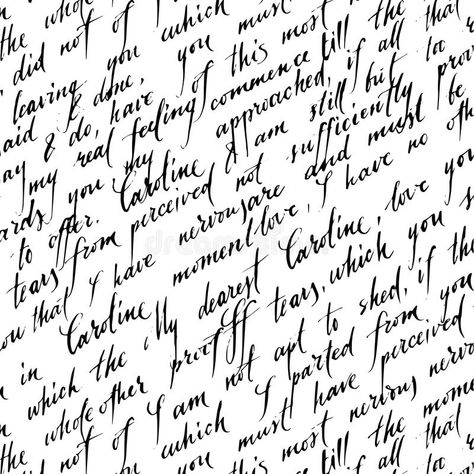 the whole
did not of you which must
leaving you you this most the that
said & done, feeling of commence till
say & do, have approached, if all too
my real my & am still but
wards you Caroline not sufficiently be
to offer. perceived and must
tears from nervous are I have no othe
you that I have moment love, Caroline, love you
Caroline My dearest tears, which you s
in which the proof ff apt to shed, if the
the whole other I am not I parted from you
did not of which you must have perceived
you this most nervous nervo
till the mome